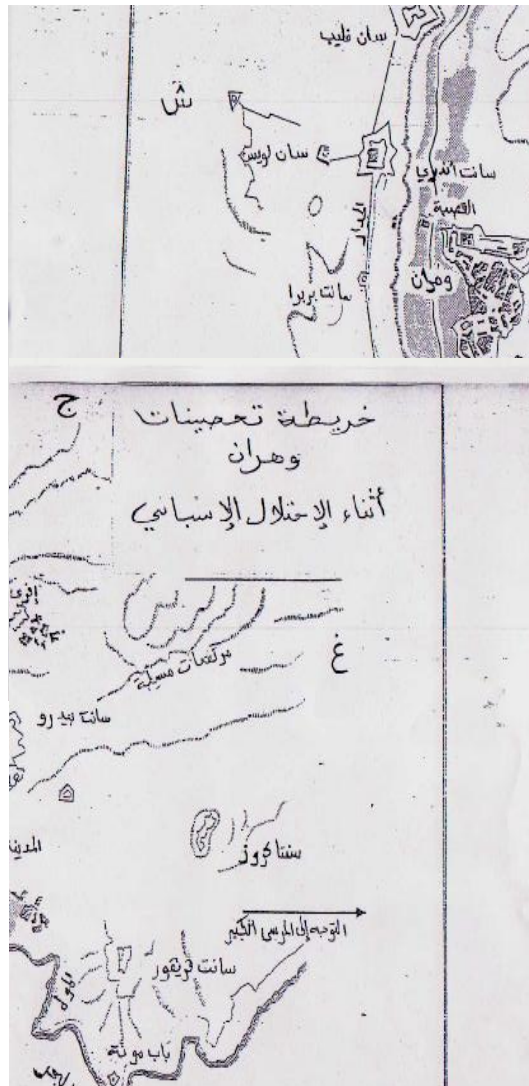 سان فليب
ش
سان لويس
سانت أندري
القصبة
الجدار
وهران
سانت بربرا
ج
خريطة تحصينات
وهران
أثناء الإحتلال الإسباني
إفري
مرتفعات مسيلة
غ
سانت بيدرو
المدينة
سنتا كروز
التوجه إلى المرسى الكبير
سانت قريقور
باب مونة